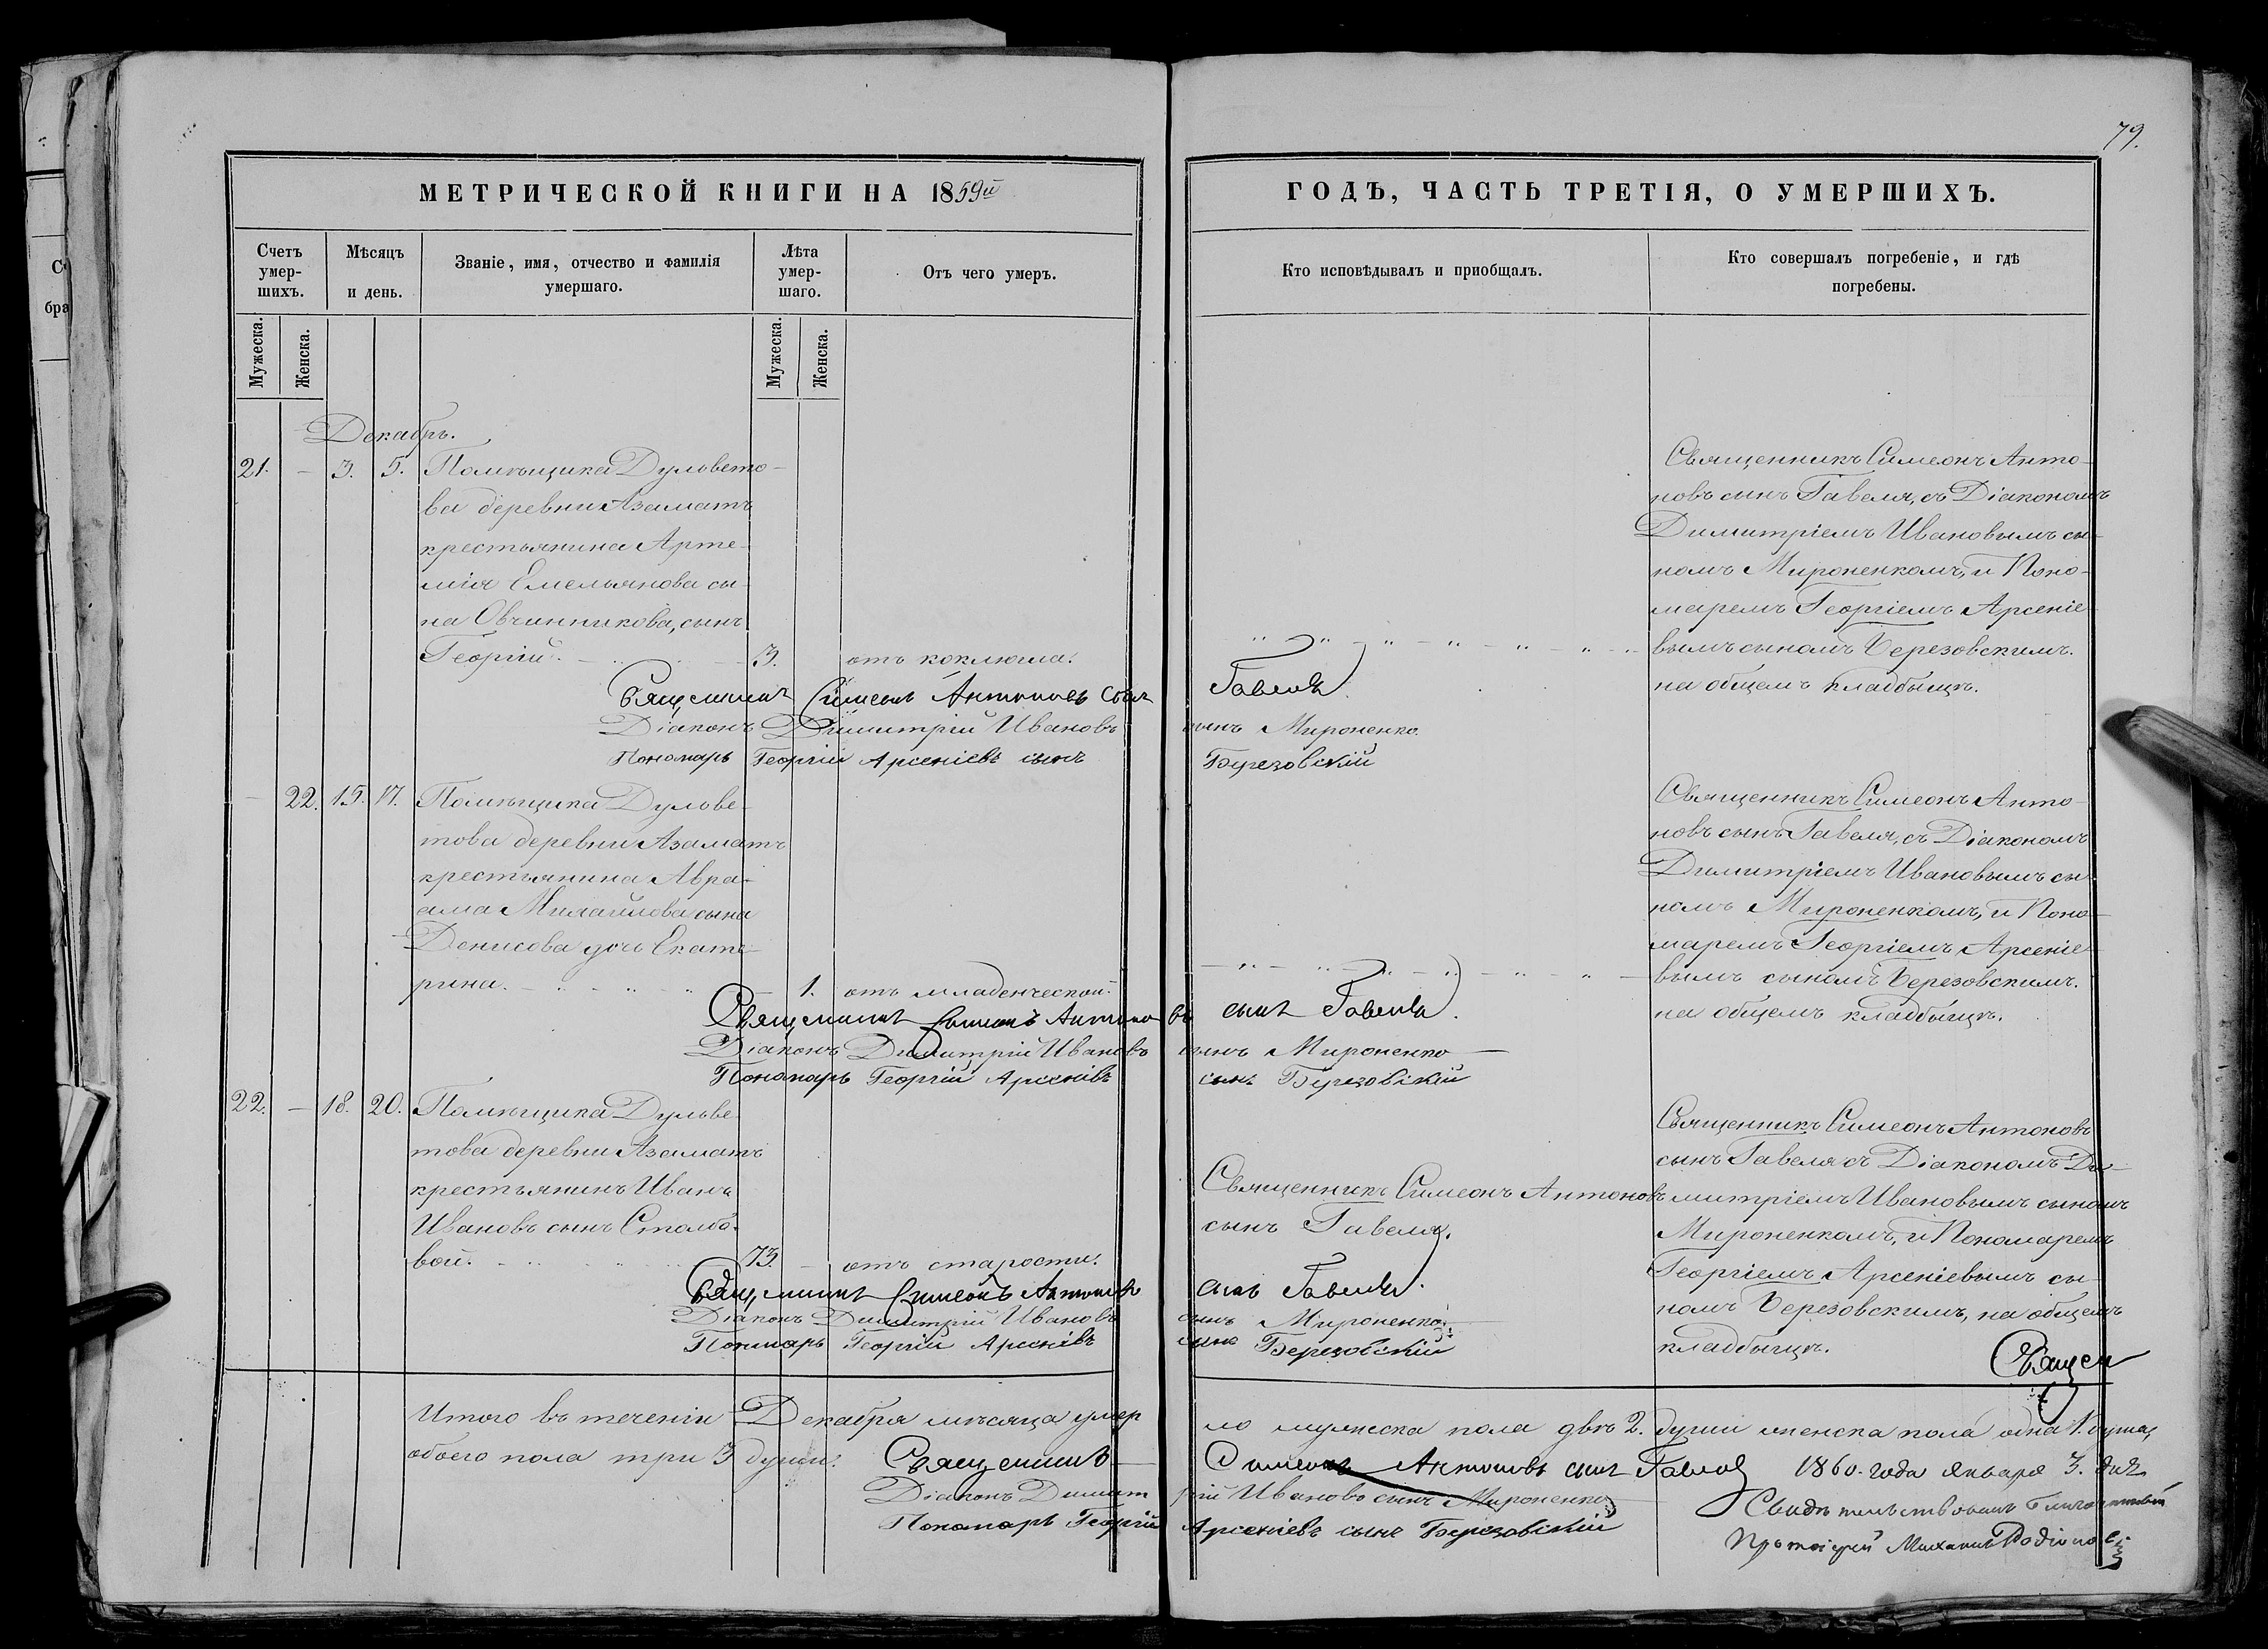 79.
МЕТРИЧЕСКОЙ КНИГИ НА 1859й
ГОДЪ, ЧАСТЬ ТРЕТІЯ, О УМЕРШИХЪ.
Счетъ умер-
шихъ.
Мѣсяцъ
и день.
Званіе, имя, отчество и фамилія
умершаго.
Лѣта
умер-
шаго.
Отъ чего умеръ.
Кто исповѣдывалъ и приобщалъ.
Кто совершалъ погребеніе, и гдѣ
погребены.
Мужеска.
Женска.
Мужеска.
Женска.
Декабрь.
21. — 3. 5. Помѣщика Дульвето-
ва деревни Азаматъ
крестьянина Арте-
мія Емельянова сы-
на Овчинникова, сынъ
Георгій. 3. отъ коклюша.
Священникъ Симеонъ Анто-
новъ сынъ Гавеля, съ Діакономъ
Димитріемъ Ивановымъ сы-
номъ Мироненкомъ, и Поно-
маремъ Георгіемъ Арсеніе-
вымъ сыномъ Березовскимъ.
на общемъ кладбыщѣ.
Священникъ Симеонъ Антоновъ сынъ Гавеля
Діаконъ Димитрій Ивановъ сынъ Мироненко.
Пономарь Георгій Арсеніевъ сынъ Березовскій
— 22. 15. 17. Помѣщика Дульве-
това деревни Азаматъ
крестьянина Авра-
ама Михайлова сына
Денисова дочь Екате-
рина. 1. отъ младенческой.
Священникъ Симеонъ Анто-
новъ сынъ Гавеля, съ Діакономъ
Димитріемъ Ивановымъ сы-
номъ Мироненкомъ, и Поно-
маремъ Георгіемъ Арсеніе-
вымъ сыномъ Березовскимъ.
на общемъ кладбыщѣ.
Священникъ Симеонъ Антоновъ сынъ Гавеля.
Діаконъ Димитрій Ивановъ сынъ Мироненко
Пономарь Георгій Арсеніевъ сынъ Березовскій
22. — 18. 20. Помѣщика Дульве-
това деревни Азаматъ
крестьянинъ Иванъ
Ивановъ сынъ Столбо-
вой. 73. — отъ старости.
Священникъ Симеонъ Антоновъ
сынъ Гавеля.
Священникъ Симеонъ Антоновъ
сынъ Гавеля съ Діакономъ Ди-
митріемъ Ивановымъ сыномъ
Мироненкомъ, и Пономаремъ
Георгіемъ Арсеніевымъ сы-
номъ Березовскимъ, на общемъ
кладбыщѣ.
Священникъ Симеонъ Антоновъ сынъ Гавеля.
Діаконъ Димитрій Ивановъ сынъ Мироненко
Пономарь Георгій Арсеніевъ сынъ Березовскій
Итого въ теченіи Декабря мѣсяца умерло мужеска пола двѣ 2. души женска пола одна 1. душа,
обоего пола три 3 души. Священникъ Симеонъ Антоновъ сынъ Гавеля 1860. года Января 3. дня
Діаконъ Димитрій Ивановъ сынъ Мироненко
Пономарь Георгій Арсеніевъ сынъ Березовскій
Свидѣтельствовалъ Благочинный
Протоіерей Михаилъ Родіоновъ